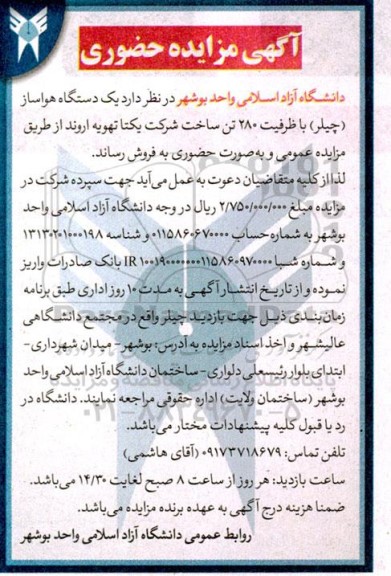 آگهی مزایده حضوری
دانشگاه آزاد اسلامی واحد بوشهر در نظر دارد یک دستگاه هواساز
(چیلر) با ظرفیت ۲۸۰ تن ساخت شرکت یکتا تهویه اروند از طریق
مزایده عمومی و به‌صورت حضوری به فروش رساند.
لذا از کلیه متقاضیان دعوت به عمل می‌آید جهت سپرده شرکت در
مزایده مبلغ ۲/۷۵۰/۰۰۰/۰۰۰ ریال در وجه دانشگاه آزاد اسلامی واحد
بوشهر به شماره حساب ۰۱۱۵۸۶۰۶۷۰۰۰۰ و شناسه ۱۳۱۳۲۰۱۰۰۰۱۹۸
و شماره شبا IR بانک صادرات واریز
نموده و از تاریخ انتشار آگهی به مدت ۱۰ روز اداری طبق برنامه
زمان‌بندی ذیل جهت بازدید چیلر واقع در مجتمع دانشگاهی
عالیشهر و اخذ اسناد مزایده به آدرس: بوشهر- میدان شهرداری-
ابتدای بلوار رئیسعلی دلواری- ساختمان دانشگاه آزاد اسلامی واحد
بوشهر (ساختمان ولایت) اداره حقوقی مراجعه نمایند. دانشگاه در
رد یا قبول کلیه پیشنهادات مختار می‌باشد.
تلفن تماس: ۰۹۱۷۳۷۱۸۶۷۹ (آقای هاشمی)
ساعت بازدید: هر روز از ساعت ۸ صبح لغایت ۱۴/۳۰ می‌باشد.
ضمنا هزینه درج آگهی به عهده برنده مزایده می‌باشد.
روابط عمومی دانشگاه آزاد اسلامی واحد بوشهر